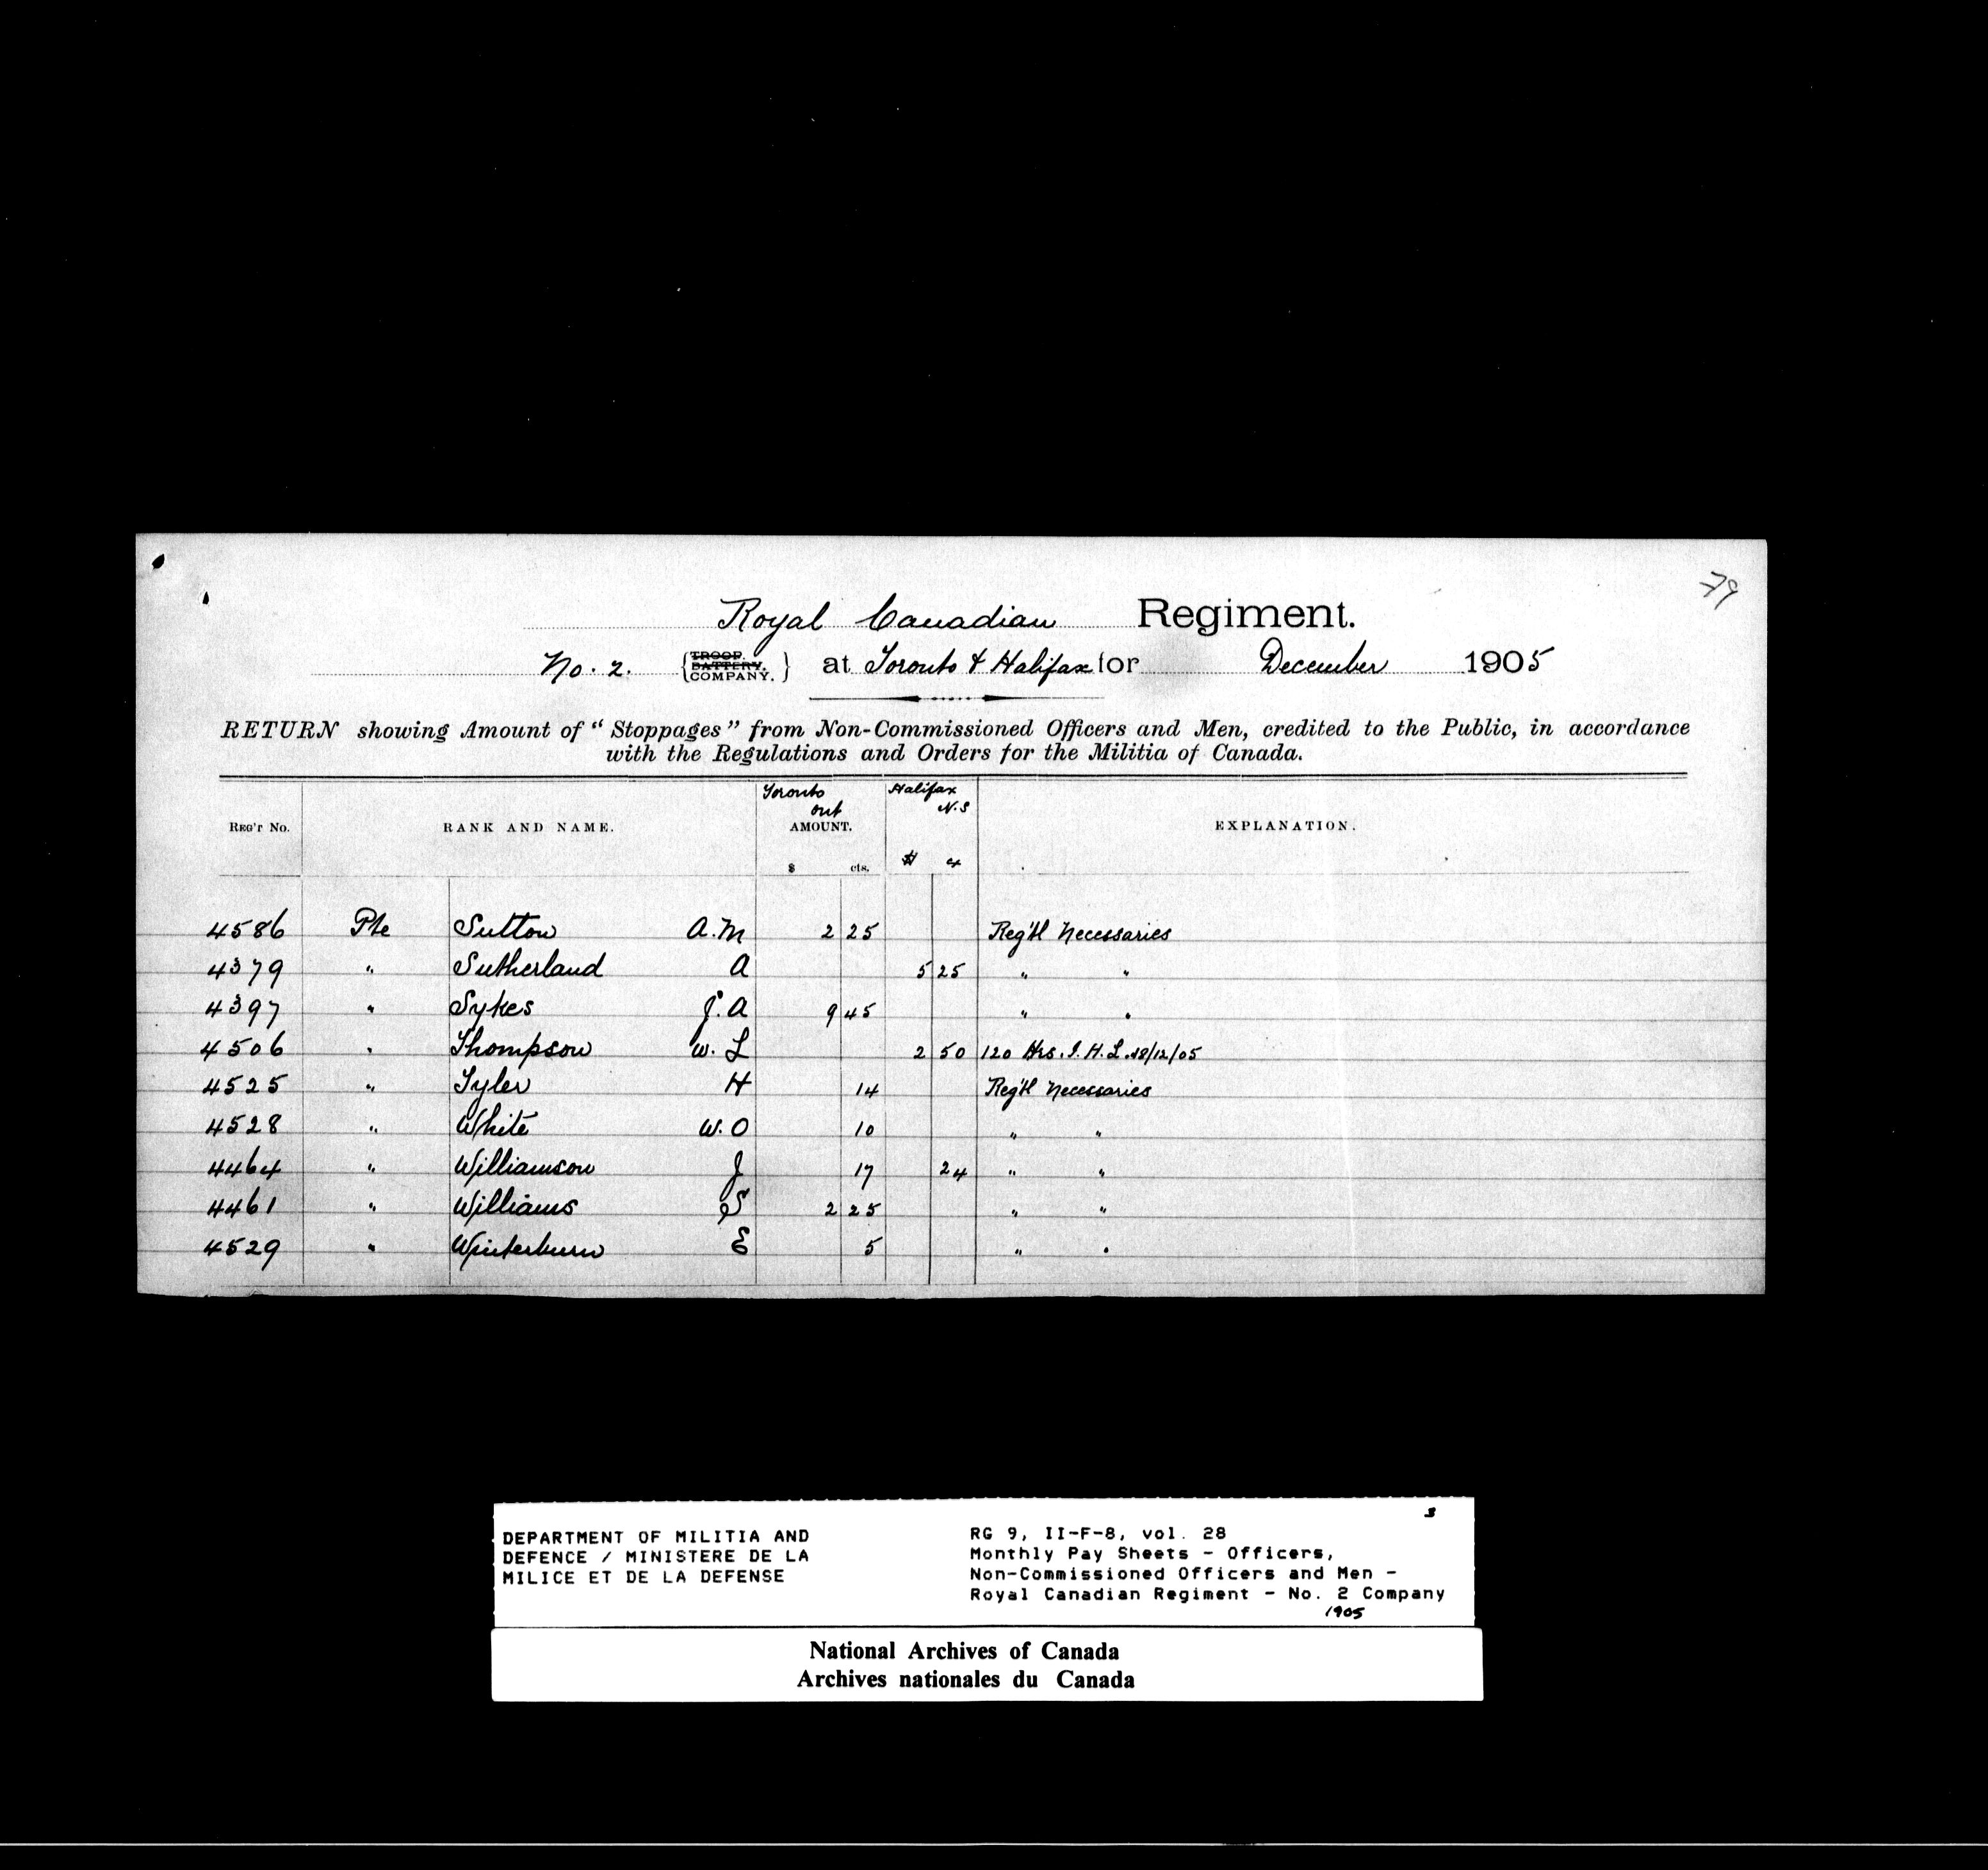 79
Royal Canadian Regiment.
No. 2. {TROOP. BATTERY. COMPANY.} at Toronto & Halifax for December 1905
RETURN showing Amount of "Stoppages" from Non-Commissioned Officers and Men, credited to the Public, in accordance
with the Regulations and Orders for the Militia of Canada.
REG'T No. RANK AND NAME. Toronto Ont AMOUNT. $ cts. Halifax N.S $ c EXPLANATION.
4586 Pte Sutton A.M 2 25 Reg'tl Necessaries
4379 " Sutherland A 5 25 " "
4397 " Sykes J.A 9 45 " "
4506 " Thompson W.L 2 50 120 Hrs. I.H.L. 18/12/05
4525 " Tyler H 14 Reg'tl Necessaries
4528 " White W.O 10 " "
4464 " Williamson J 17 24 " "
4461 " Williams S 2 25 " "
4529 " Winterburn E 5 " "
3
DEPARTMENT OF MILITIA AND
DEFENCE / MINISTERE DE LA
MILICE ET DE LA DEFENSE
RG 9, II-F-8, vol. 28
Monthly Pay Sheets - Officers,
Non-Commissioned Officers and Men -
Royal Canadian Regiment - No. 2 Company
1905
National Archives of Canada
Archives nationales du Canada